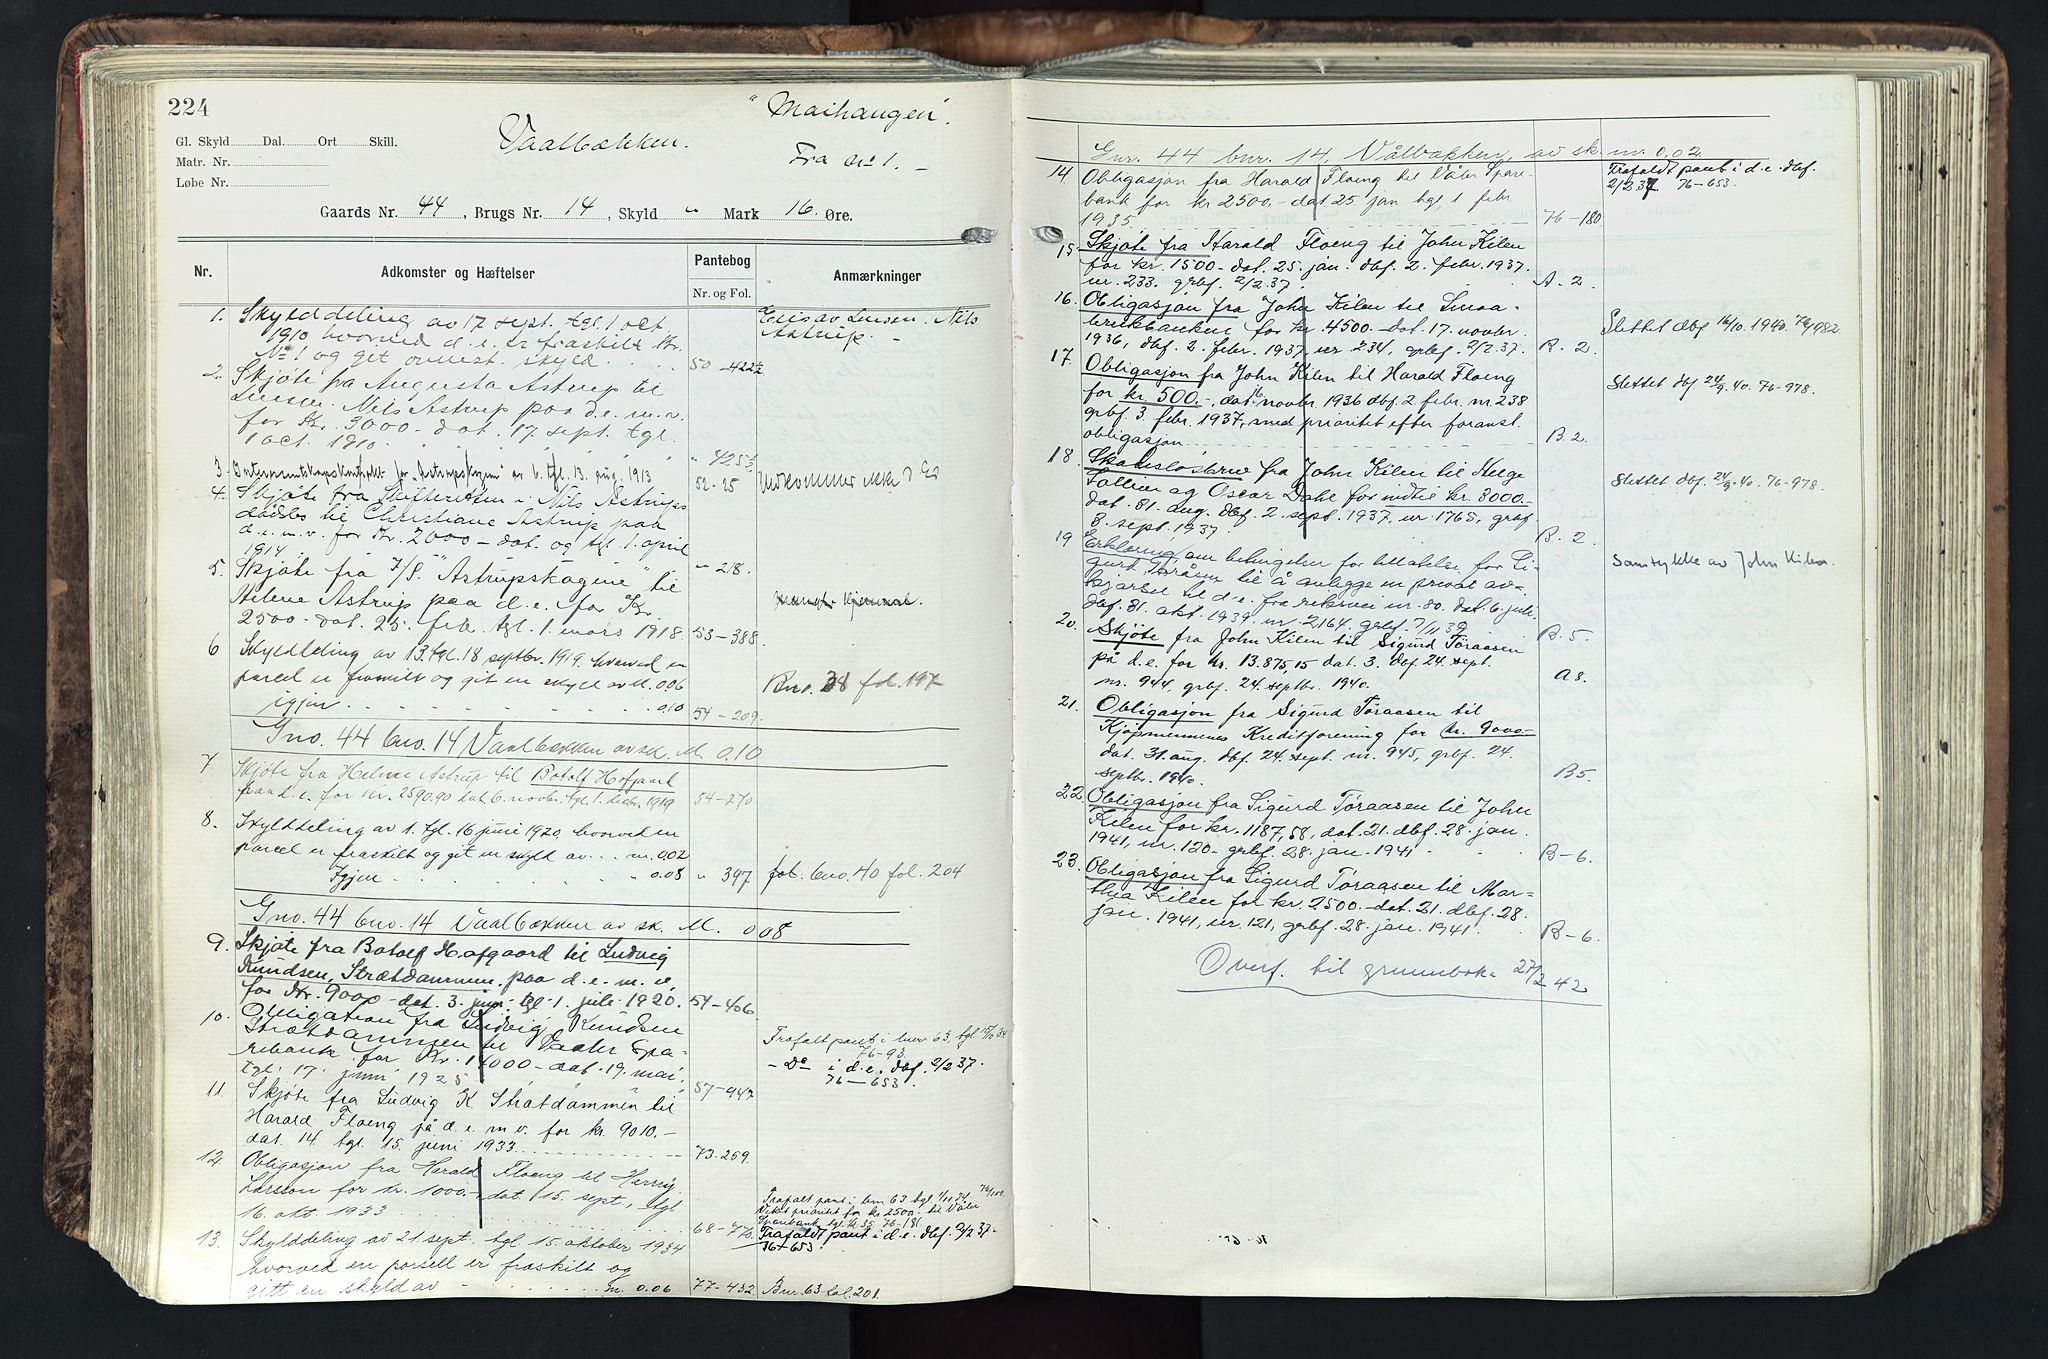 224
"Maihaugen".
Gl. Skyld Dal. Ort Skill.
Vaalbækken.
Matr. Nr.
Fra No 1. -
Løbe Nr.
Gaards Nr. 44, Brugs Nr. 14, Skyld " Mark 16 Øre.
Nr. Adkomster og Hæftelser Pantebog Anmærkninger
Nr. og Fol.
1. Skylddeling av 17 sept. tgl. 1 oct. Nils
1910, hvorved d. e. er fraskilt Br. Astrup. -
No 1 og git ovnest. skyld . . . 50-422½
2. Skjøte fra Augusta Astrup til
Nils Astrup paa d. e. m. v.
for Kr. 3000- dat. 17. sept. tgl.
1 oct. 1910. " 425½
3. "Astrupskogene" av 6. tgl. 13. aug. 1913 52-25 Vedkommer ikke d. E.
4. Skjøte fra Skifteretten i Nils Astrups
dødsbo til Christiane Astrup paa
d. e. m. v. for Kr. 2000- dat. og tgl. 1. april
1914. " 218.
5. Skjøte fra I/S. "Astrupskogene" til
Helene Astrup paa d. e. for Kr.
2500- dat. 25. feb. tgl. 1. mars 1918. 53-388.
6 Skylddeling av 13. tgl. 18 septbr. 1919. hvorved en
parcel er fraskilt og git en skyld av M. 0.06 Bno. 38 fol. 197
igjen . . . . . 0.10 54-209.
Gno. 44 bno. 14 Vaalbækken av sk. M. 0.10
7. Skjøte fra Helene Astrup til Botolf Hofgaard
paa d. e. for Kr. 2590.90 dat. 6. novbr. tgl. 1. decbr. 1919 54-270
8. Skylddeling av 1. tgl. 16 juni 1920, hvorved en
parcel er fraskilt og git en skyld av . . . m. 0.02
Igjen . . . . . " 0.08 " 397 fol. bno. 40 fol. 204
Gno. 44 bno. 14 Vaalbækken av sk. M. 0.08
9. Skjøte fra Botolf Hofgaard til Ludvig
Knudsen, Strætdammen, paa d. e. m. v.
for Kr. 9000- dat. 3. juni tgl. 1. juli 1920. 54-406
10. Obligation fra Ludvig Knudsen
Strætdammen til Vaaler Spa- Frafalt pant i bnr 63, tgl. 15/10 34
rebank for Kr. 14000- dat. 19. mai, 76-93.
tgl. 17. juni 1925 57-947 - Do i d. e. dbf. 2/2 37. 76-653.
11. Skjøte fra Ludvig K. Strætdammen til
Harald Floeng på d. e. m. v. for kr. 9010.-
dat. 14. tgl. 15. juni 1933 . . . . 73-259.
12. Obligasjon fra Harald Floeng til Henry
Larsson for kr. 1000.- dat. 15. sept., tgl. Frafalt pant i bnr 63 tgl.
16. okt. 1933 . . . . 68-770. Veket prioritet for kr 2500- til Våler
Sparebank tgl. 76-181.
13. Skylddeling av 21. sept. tgl. 15. oktober 1934 Frafaldt pant i d. e. dbf. 2/2 37.
hvorved en parsell er fraskilt og 76-653.
gitt en skyld av . . . m. 0.06 77-432 Bnr. 63 fol. 201
Gnr. 44 bnr. 14, Vålbakken, av sk. m. 0,02.
14. Obligasjon fra Harald Floeng til Våler Spare- Frafaldt pant i d. e. dbf.
bank for kr 2500.- dat 25 jan tgl. 1 febr 2/2 37 76-653.
1935 76-180
15. Skjøte fra Harald Floeng til John Kilen
for kr. 1500- dat. 25. jan. dbf. 2. febr. 1937.
nr. 233. grbf. 2/2 37. A. 2.
16. Obligasjon fra John Kilen til Smaa-
brukbanken for kr. 4500- dat. 17. novbr. Slettet dbf 16/10. 1940. 76/982
1936, dbf. 2. febr. 1937, nr 234, grbf. 2/2 37. B. 2.
17. Obligasjon fra John Kilen til Harald Floeng Slettet dbf 24/9. 40. 76-978.
for kr. 500.-, dat. novbr. 1936 dbf. 2 febr. nr 238
grbf. 3. febr. 1937, med prioritet efter foranst.
obligasjon . . . B. 2.
18. Skadesløsbrev fra John Kilen til Helge
Follien og Oscar Dahl for indtil kr. 3000- Slettet dbf. 24/9. 40. 76-978.
dat. 31. aug. dbf. 2. sept. 1937, nr 1765, grbf.
3. sept. 1937. B. 2
19 Erklæring om betingelser for tillatelse for Si-
gurd Toråsen til å anlegge en privat av- Samtykke av John Kilen.
kjørsel til d. e. fra riksvei nr. 80. dat. 6. juli.
dbf. 31. okt. 1939. nr. 2164. grbf. 7/11 39 B. 5.
20. Skjøte fra John Kilen til Sigurd Toraasen
på d. e. for kr. 13.875,15 dat. 3. dbf 24. sept.
nr. 944, grbf. 24. septbr. 1940. A 8.
21. Obligasjon fra Sigurd Toraasen til
Kjøpmennenes Kreditforening for kr. 9000-
dat. 31. aug. dbf. 24. sept. nr. 945, grbf. 24.
septbr. 1940. B 5.
22. Obligasjon fra Sigurd Toraasen til John
Kilen for kr. 1187,58, dat. 21. dbf. 28. jan.
1941, nr. 120- grbf. 28. jan. 1941 B-6.
23. Obligasjon fra Sigurd Toraasen til Mar-
thea Kilen for kr. 2500.- dat. 21. dbf. 28.
jan. 1941, nr. 121, grbf. 28. jan. 1941. B-6.
Overf. til grunnboka 27/2 42